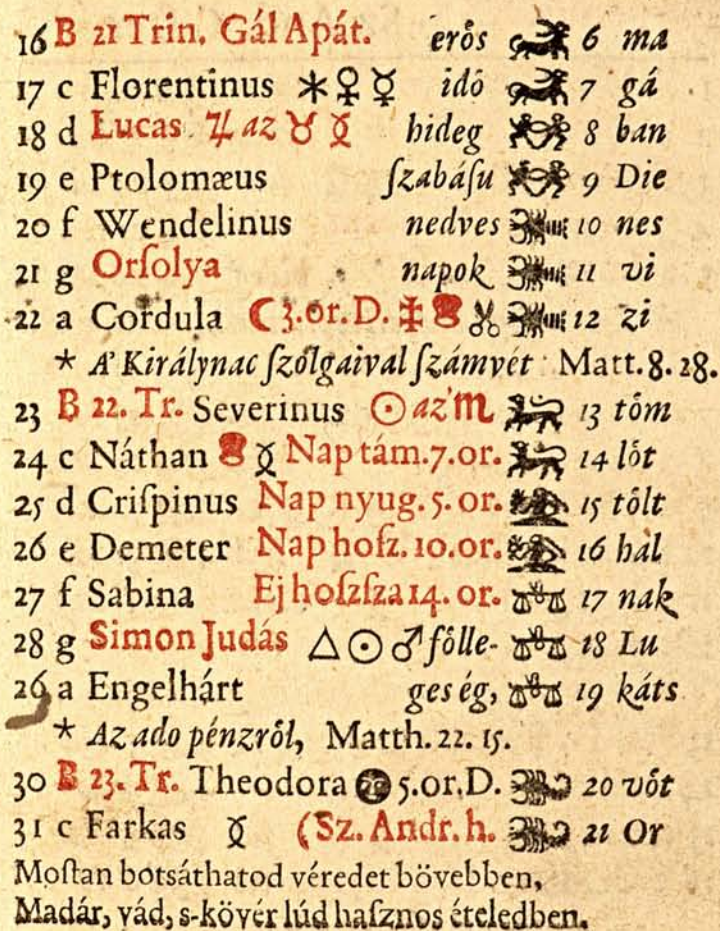 16 B 21 Trin. Gál Apát. erős ♌ 6 ma
17 c Florentinus ⚹ ♀ ☿ idő ♌ 7 gá
18 d Lucas ♃ az ♉ hideg ♊ 8 ban
19 e Ptolomæus ſzabáſu ♊ 9 Die
20 f Wendelinus nedves ♋ 10 nes
21 g Orſolya napok ♋ 11 vi
22 a Cordula ☾ 3.or.D. ♋ 12 zi
* A' Királynac ſzolgaival ſzámvét Matt.8.28.
23 B 22. Tr. Severinus ☉ az' ♏ ♌ 13 töm
24 c Náthan Nap tám.7.or. ♌ 14 löt
25 d Criſpinus Nap nyug. 5. or. ♍ 15 tölt
26 e Demeter Nap hoſz. 10.or. ♍ 16 hal
27 f Sabina Ej hoſzſza 14. or. ♎ 17 nak
28 g Simon Judás △ ☉ ♂ fölle- ♎ 18 Lu
26 a Engelhárt ges ég, ♎ 19 káts
* Az ado pénzről, Matth. 22. 15.
30 B 23. Tr. Theodora 5.or.D. ♏ 20 vöt
31 c Farkas (Sz. Andr. h. ♏ 21 Or
Moſtan botsáthatod véredet bövebben,
Madár, vád, s-kövér lúd haſznos ételedben.